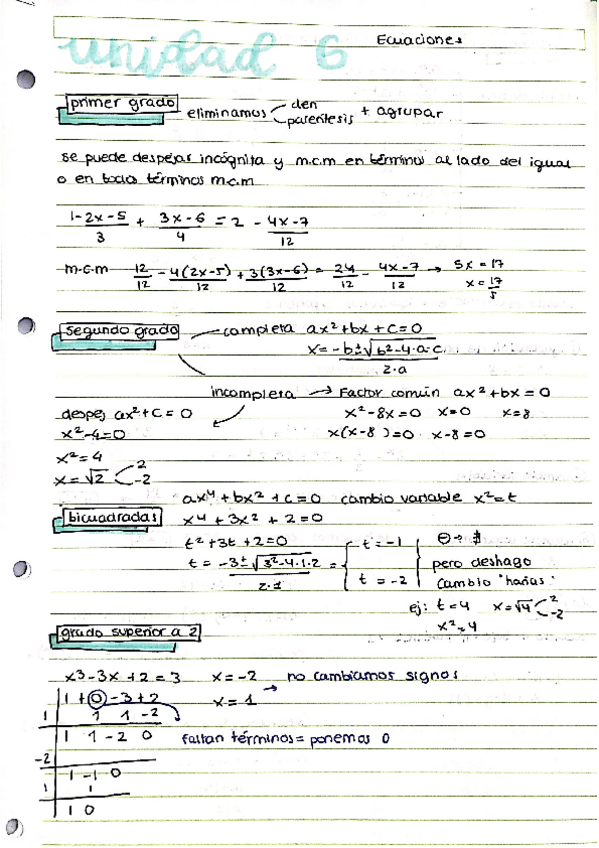 unidad 6 Ecuaciones
primer grado eliminamos den parentesis + agrupar
se puede despejar incógnita y m.c.m en términos al lado del igual
o en todos términos m.c.m
1-2x-5/3 + 3x-6/4 = 2 - 4x-7/12
m.c.m 12/12 - 4(2x-5)/12 + 3(3x-6)/12 = 24/12 - 4x-7/12 → 5x = 17
x = 17/5
segundo grado completa ax²+bx+c=0
x = -b±√b²-4·a·c / 2·a
incompleta → Factor común ax²+bx=0
despej ax²+c=0 x²-8x=0 x=0 x=8
x²-4=0 x(x-8)=0 x-8=0
x²=4
x=√2 2 -2
ax⁴+bx²+c=0 cambio variable x²=t
bicuadradas x⁴+3x²+2=0
t²+3t+2=0
t = -3±√3²-4·1·2 / 2·1 = t=-1 t=-2
⊖→∄
pero deshago
cambio "harías"
ej: t=4 x=√4 2 -2
x²=4
grado superior a 2
x³-3x+2=3 x=-2 → no cambiamos signos
1 +0 -3 +2 x=1
1 1 1 -2
1 1 -2 0 faltan términos = ponemos 0
-2
1 -1 0
1 1
1 0